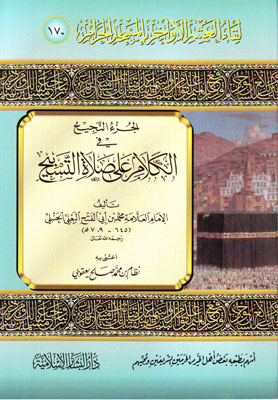 لقاء العشر الأواخر بالمسجد الحرام
١٧٠
الجزء النجيح
في
الكلام على صلاة التسبيح
تأليف
الإمام العلامة محمد بن أبي الفتح البعلي الحنبلي
(٦٤٥ - ٧٠٩ هـ)
رحمه الله تعالى
اعتنى به
نظام بن محمد صالح يعقوبي
أسهم بطبعه بعض أهل الخير من الحرمين الشريفين ومحبيهم
دار البشائر الإسلامية